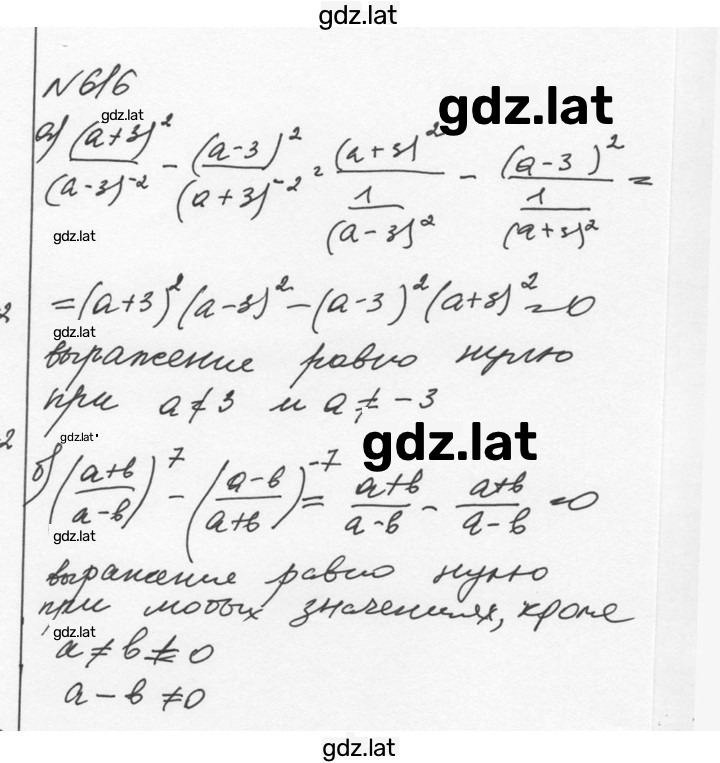 gdz.lat
N 616
gdz.lat
gdz.lat
а) (a+3)²/(a-3)⁻² - (a-3)²/(a+3)⁻² = (a+3)²/(1/(a-3)²) - (a-3)²/(1/(a+3)²) =
gdz.lat
= (a+3)²(a-3)² - (a-3)²(a+3)² = 0
gdz.lat
выражение равно нулю
при a ≠ 3 и a ≠ -3
gdz.lat
gdz.lat
б) ((a+b)/(a-b))⁷ - ((a-b)/(a+b))⁻⁷ = (a+b)/(a-b) - (a+b)/(a-b) = 0
gdz.lat
выражение равно нулю
при любых значениях, кроме
gdz.lat
a ≠ b ≠ 0
a - b ≠ 0
gdz.lat